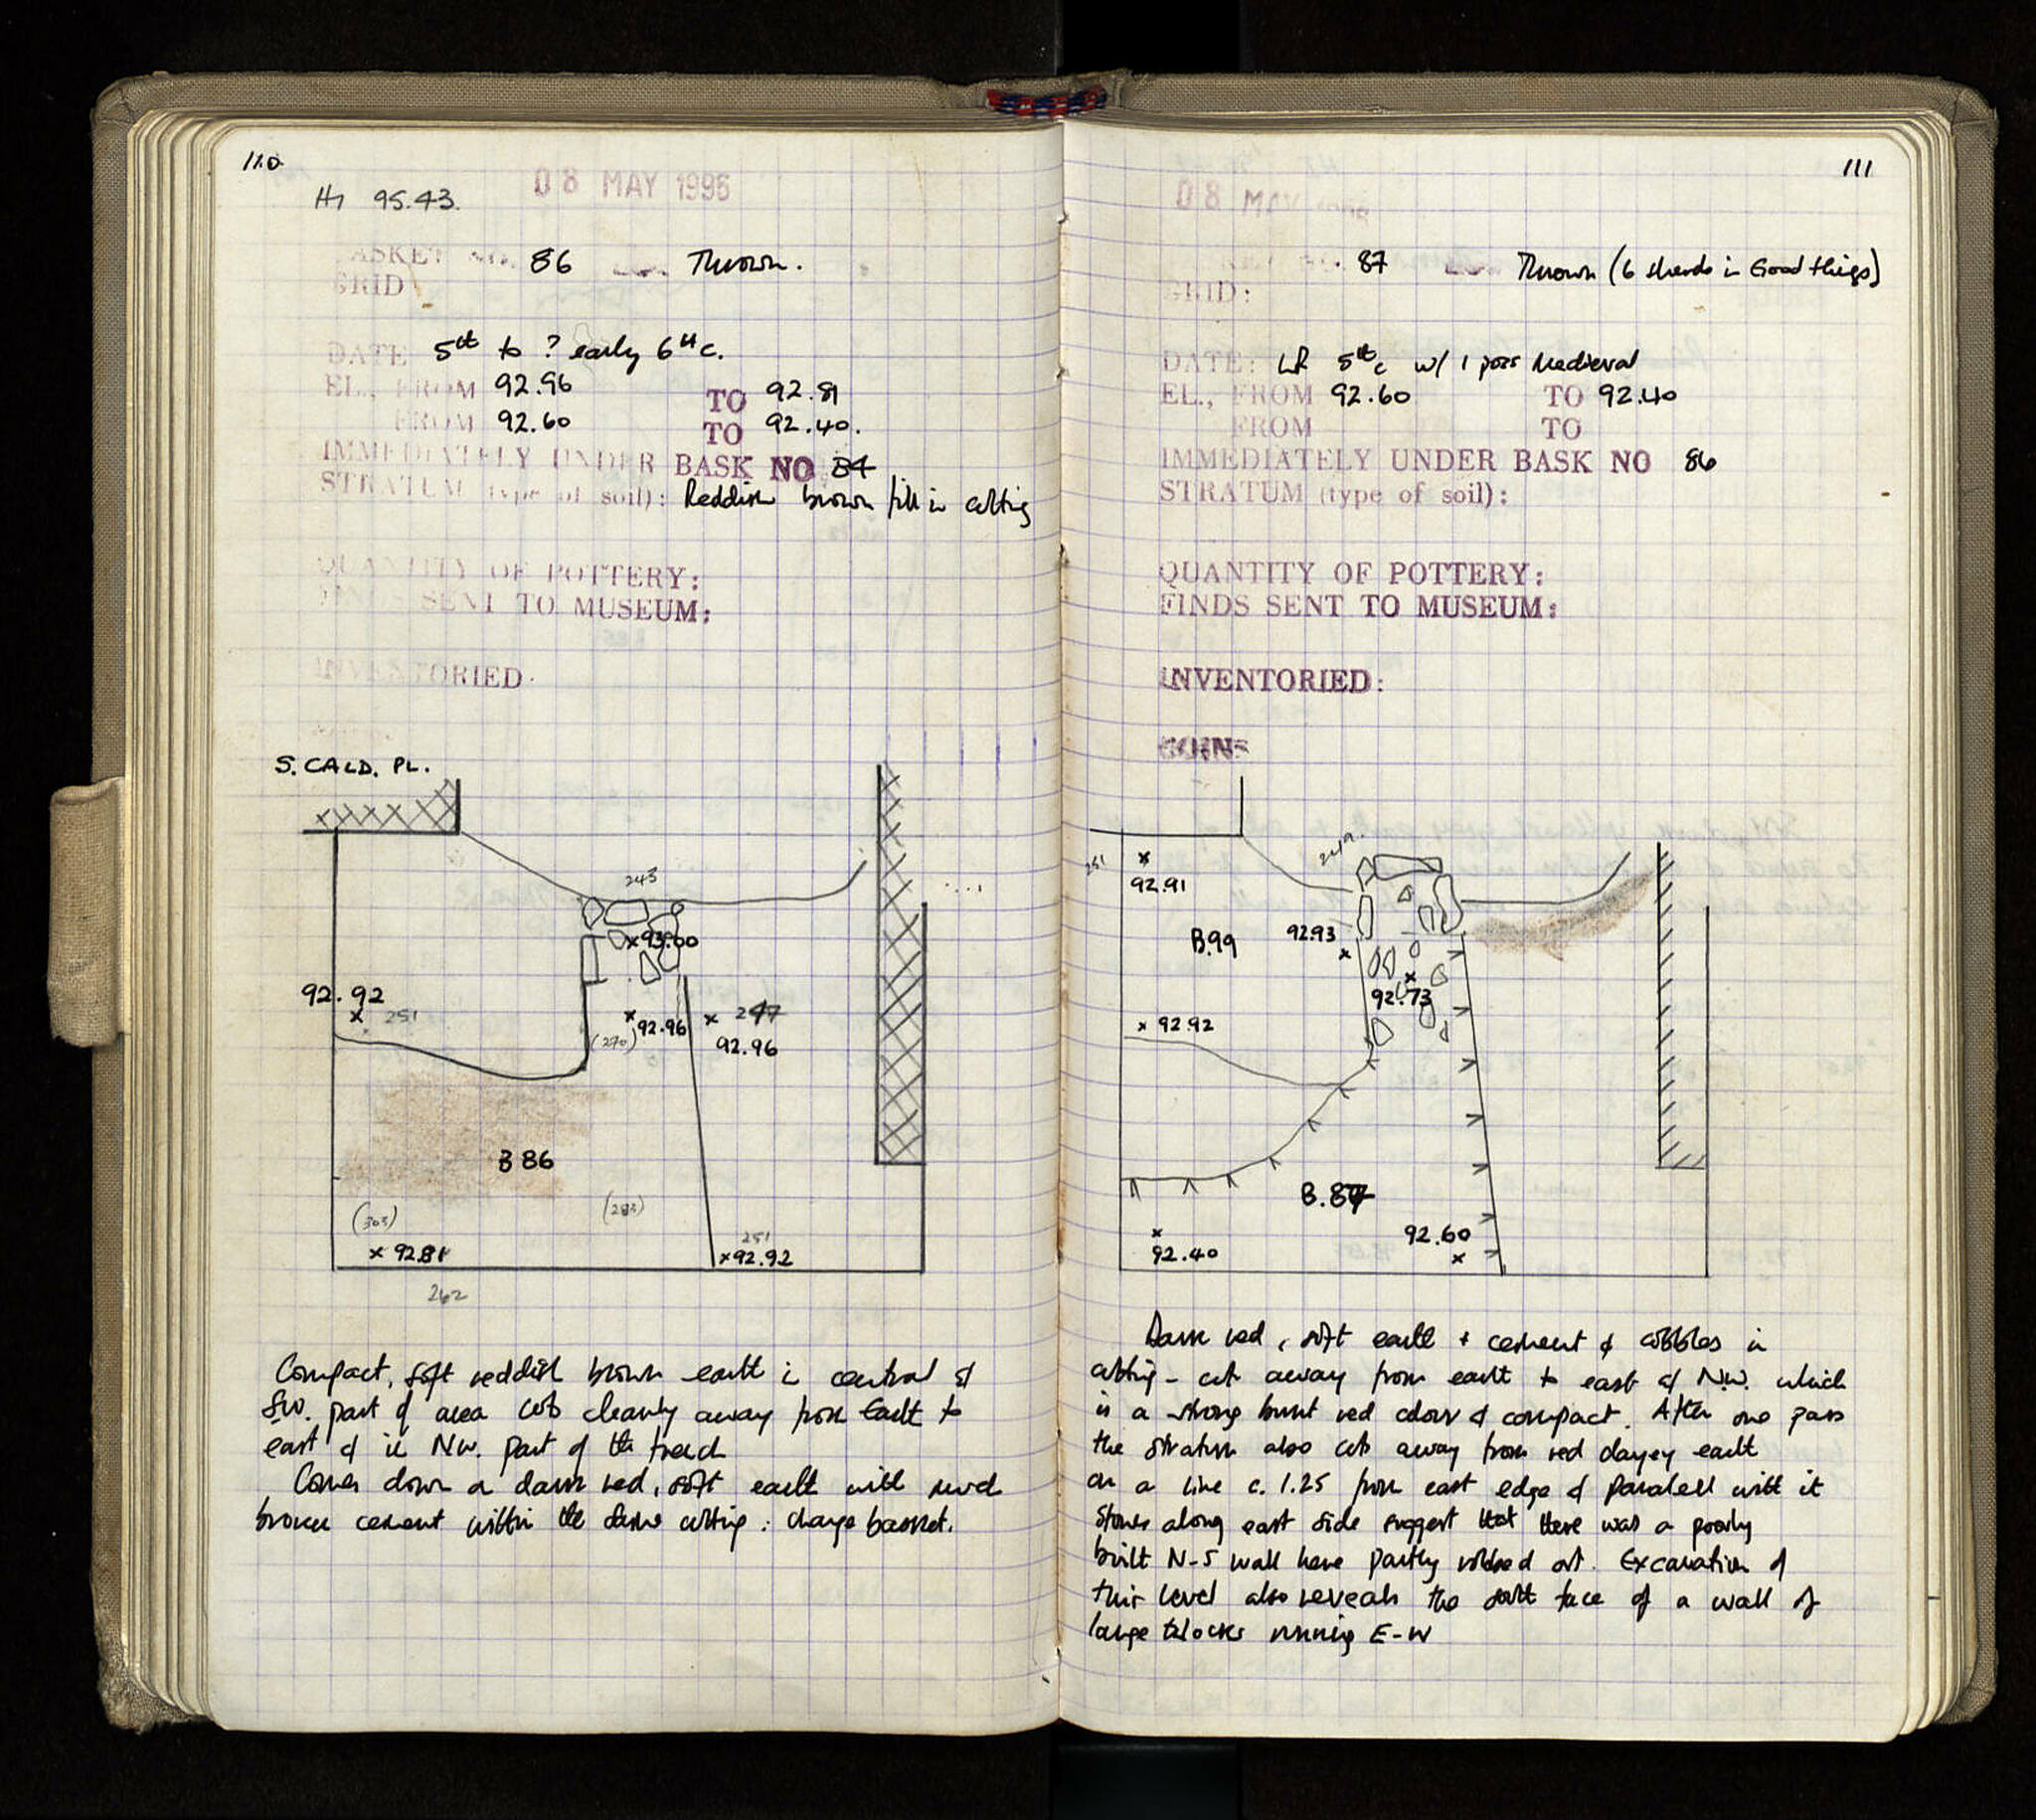 110
H7 95.43.
08 MAY 1996
BASKET NO. 86 Thrown.
GRID
DATE 5th to ? early 6th c.
EL., FROM 92.96 TO 92.81
FROM 92.60 TO 92.40.
IMMEDIATELY UNDER BASK NO 84
STRATUM (type of soil): Reddish brown fill in cutting
QUANTITY OF POTTERY:
FINDS SENT TO MUSEUM:
INVENTORIED:
S. CALD. PL.
243
x 93.00
92.92
x 251
x 92.96
(270)
x 247
92.96
B 86
(303)
(283)
x 92.81
251
x 92.92
262
Compact, soft reddish brown earth in central &
SW. part of area cuts cleanly away from earth to
east & in NW. part of the trench
Comes down on dark red, soft earth with much
broken cement within the same cutting : change basket.
111
08 MAY 1996
87 Thrown (6 sherds in Good things)
GRID:
DATE: LR 5th c w/ 1 poss Medieval
EL., FROM 92.60 TO 92.40
FROM TO
IMMEDIATELY UNDER BASK NO 86
STRATUM (type of soil):
QUANTITY OF POTTERY:
FINDS SENT TO MUSEUM:
INVENTORIED:
COINS
251
x
92.91
B.99
92.93
x
x
92.73
x 92.92
B.87
x
92.40
92.60
x
Dark red, soft earth + cement & cobbles in
cutting - cuts away from earth to east & N.W. which
is a strong burnt red colour & compact. After one pass
the stratum also cuts away from red clayey earth
on a line c. 1.25 from east edge & paralell with it
Stones along east side suggest that there was a poorly
built N-S wall here partly robbed out. Excavation of
this level also reveals the south face of a wall of
large blocks running E-W